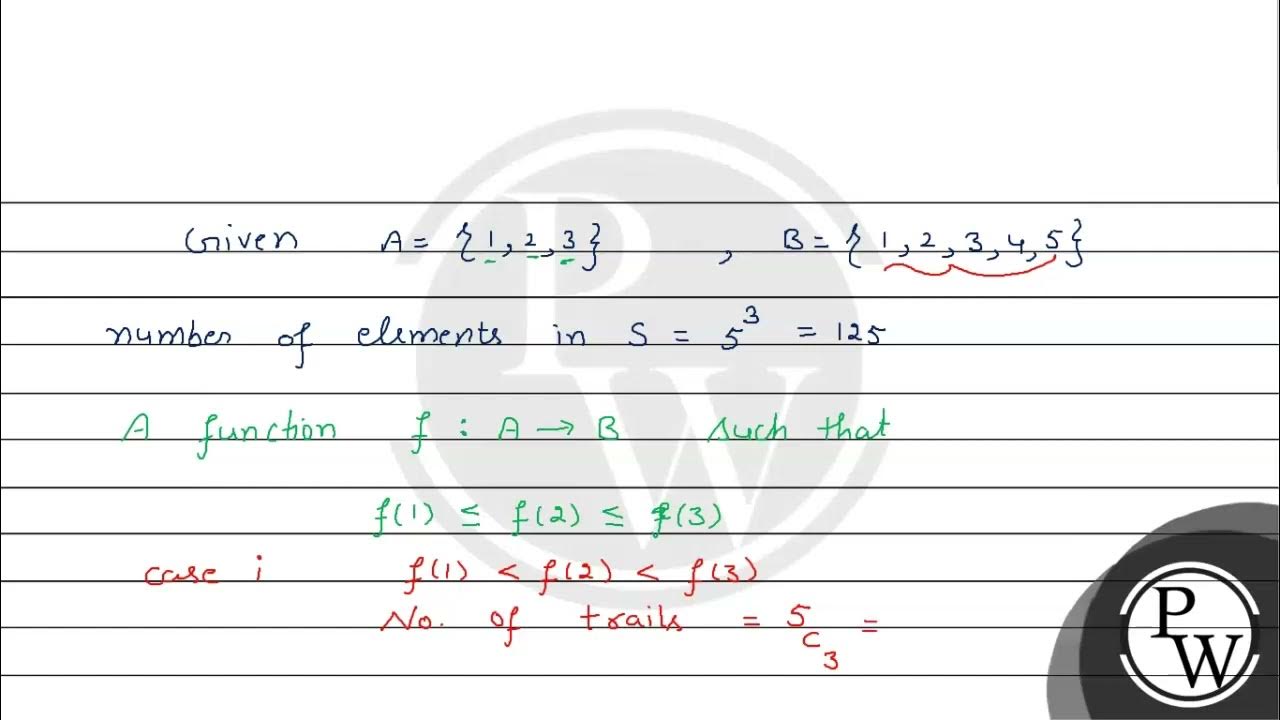 Given A = {1, 2, 3} , B = {1, 2, 3, 4, 5}
number of elements in S = 5³ = 125
A function f : A → B such that
f(1) ≤ f(2) ≤ f(3)
case i f(1) < f(2) < f(3)
No. of trails = 5C₃ =
PW
PW